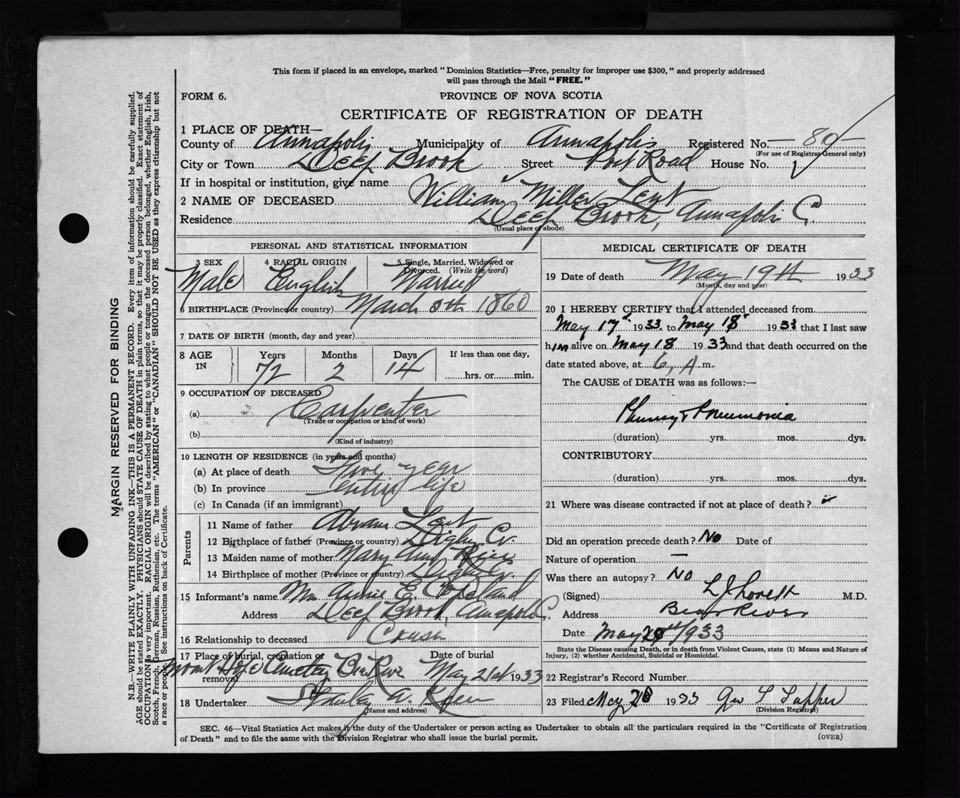 This form if placed in an envelope, marked "Dominion Statistics—Free, penalty for improper use $300," and properly addressed
will pass through the Mail "FREE."
FORM 6.
PROVINCE OF NOVA SCOTIA
CERTIFICATE OF REGISTRATION OF DEATH
1 PLACE OF DEATH—
County of Annapolis Municipality of Annapolis Registered No. 80
(For use of Registrar General only)
City or Town Deep Brook Street Post Road House No.
If in hospital or institution, give name
2 NAME OF DECEASED William Miller Lent
Residence Deep Brook, Annapolis C.
(Usual place of abode)
PERSONAL AND STATISTICAL INFORMATION
3 SEX 4 RACIAL ORIGIN 5 Single, Married, Widowed or Divorced. (Write the word)
Male English Married
6 BIRTHPLACE (Province or country) March 5th 1860
7 DATE OF BIRTH (month, day and year)
8 AGE IN Years Months Days If less than one day,
72 2 14 hrs. or min.
9 OCCUPATION OF DECEASED
(a) Carpenter
(Trade or occupation or kind of work)
(b)
(Kind of industry)
10 LENGTH OF RESIDENCE (in years and months)
(a) At place of death Five year
(b) In province entire life
(c) In Canada (if an immigrant)
Parents
11 Name of father Abram Lent
12 Birthplace of father (Province or country) Digby Co.
13 Maiden name of mother Mary Ann Rice
14 Birthplace of mother (Province or country) Digby
15 Informant's name Mrs Annie E. Copeland
Address Deep Brook, Annapolis C.
16 Relationship to deceased Cousin
17 Place of burial, cremation or removal Date of burial
Mount Hope Cemetery Bear River May 21st 1933
18 Undertaker
(Name and address)
MEDICAL CERTIFICATE OF DEATH
19 Date of death May 19th 1933
(Month, day and year)
20 I HEREBY CERTIFY that I attended deceased from
May 17th 1933 to May 18 1933 that I last saw
him alive on May 18 1933 and that death occurred on the
date stated above, at 6 A. m.
The CAUSE of DEATH was as follows:—
Pneumonia
(duration) yrs. mos. dys.
CONTRIBUTORY
(duration) yrs. mos. dys.
21 Where was disease contracted if not at place of death?
Did an operation precede death? No Date of
Nature of operation —
Was there an autopsy? No
(Signed) L J Lovett M.D.
Address Bear River
Date May 20th/1933
State the Disease causing Death, or in death from Violent Causes, state (1) Means and Nature of
Injury, (2) whether Accidental, Suicidal or Homicidal.
22 Registrar's Record Number
23 Filed May 20 1933 Geo L Tupper
(Division Registrar)
SEC. 46—Vital Statistics Act makes it the duty of the Undertaker or person acting as Undertaker to obtain all the particulars required in the "Certificate of Registration
of Death" and to file the same with the Division Registrar who shall issue the burial permit. (OVER)
MARGIN RESERVED FOR BINDING
N.B.—WRITE PLAINLY WITH UNFADING INK—THIS IS A PERMANENT RECORD. Every item of information should be carefully supplied.
AGE should be stated EXACTLY. PHYSICIANS should STATE CAUSE OF DEATH in plain terms, so that it may be properly classified. Exact statement of
OCCUPATION is very important. RACIAL ORIGIN will be described by stating to what people or tongue the deceased person belonged, whether English, Irish,
Scotch, French, German, Russian, Ruthenian, etc. The terms "AMERICAN" or "CANADIAN" SHOULD NOT BE USED as they express citizenship but not
a race or people. See instructions on back of Certificate.